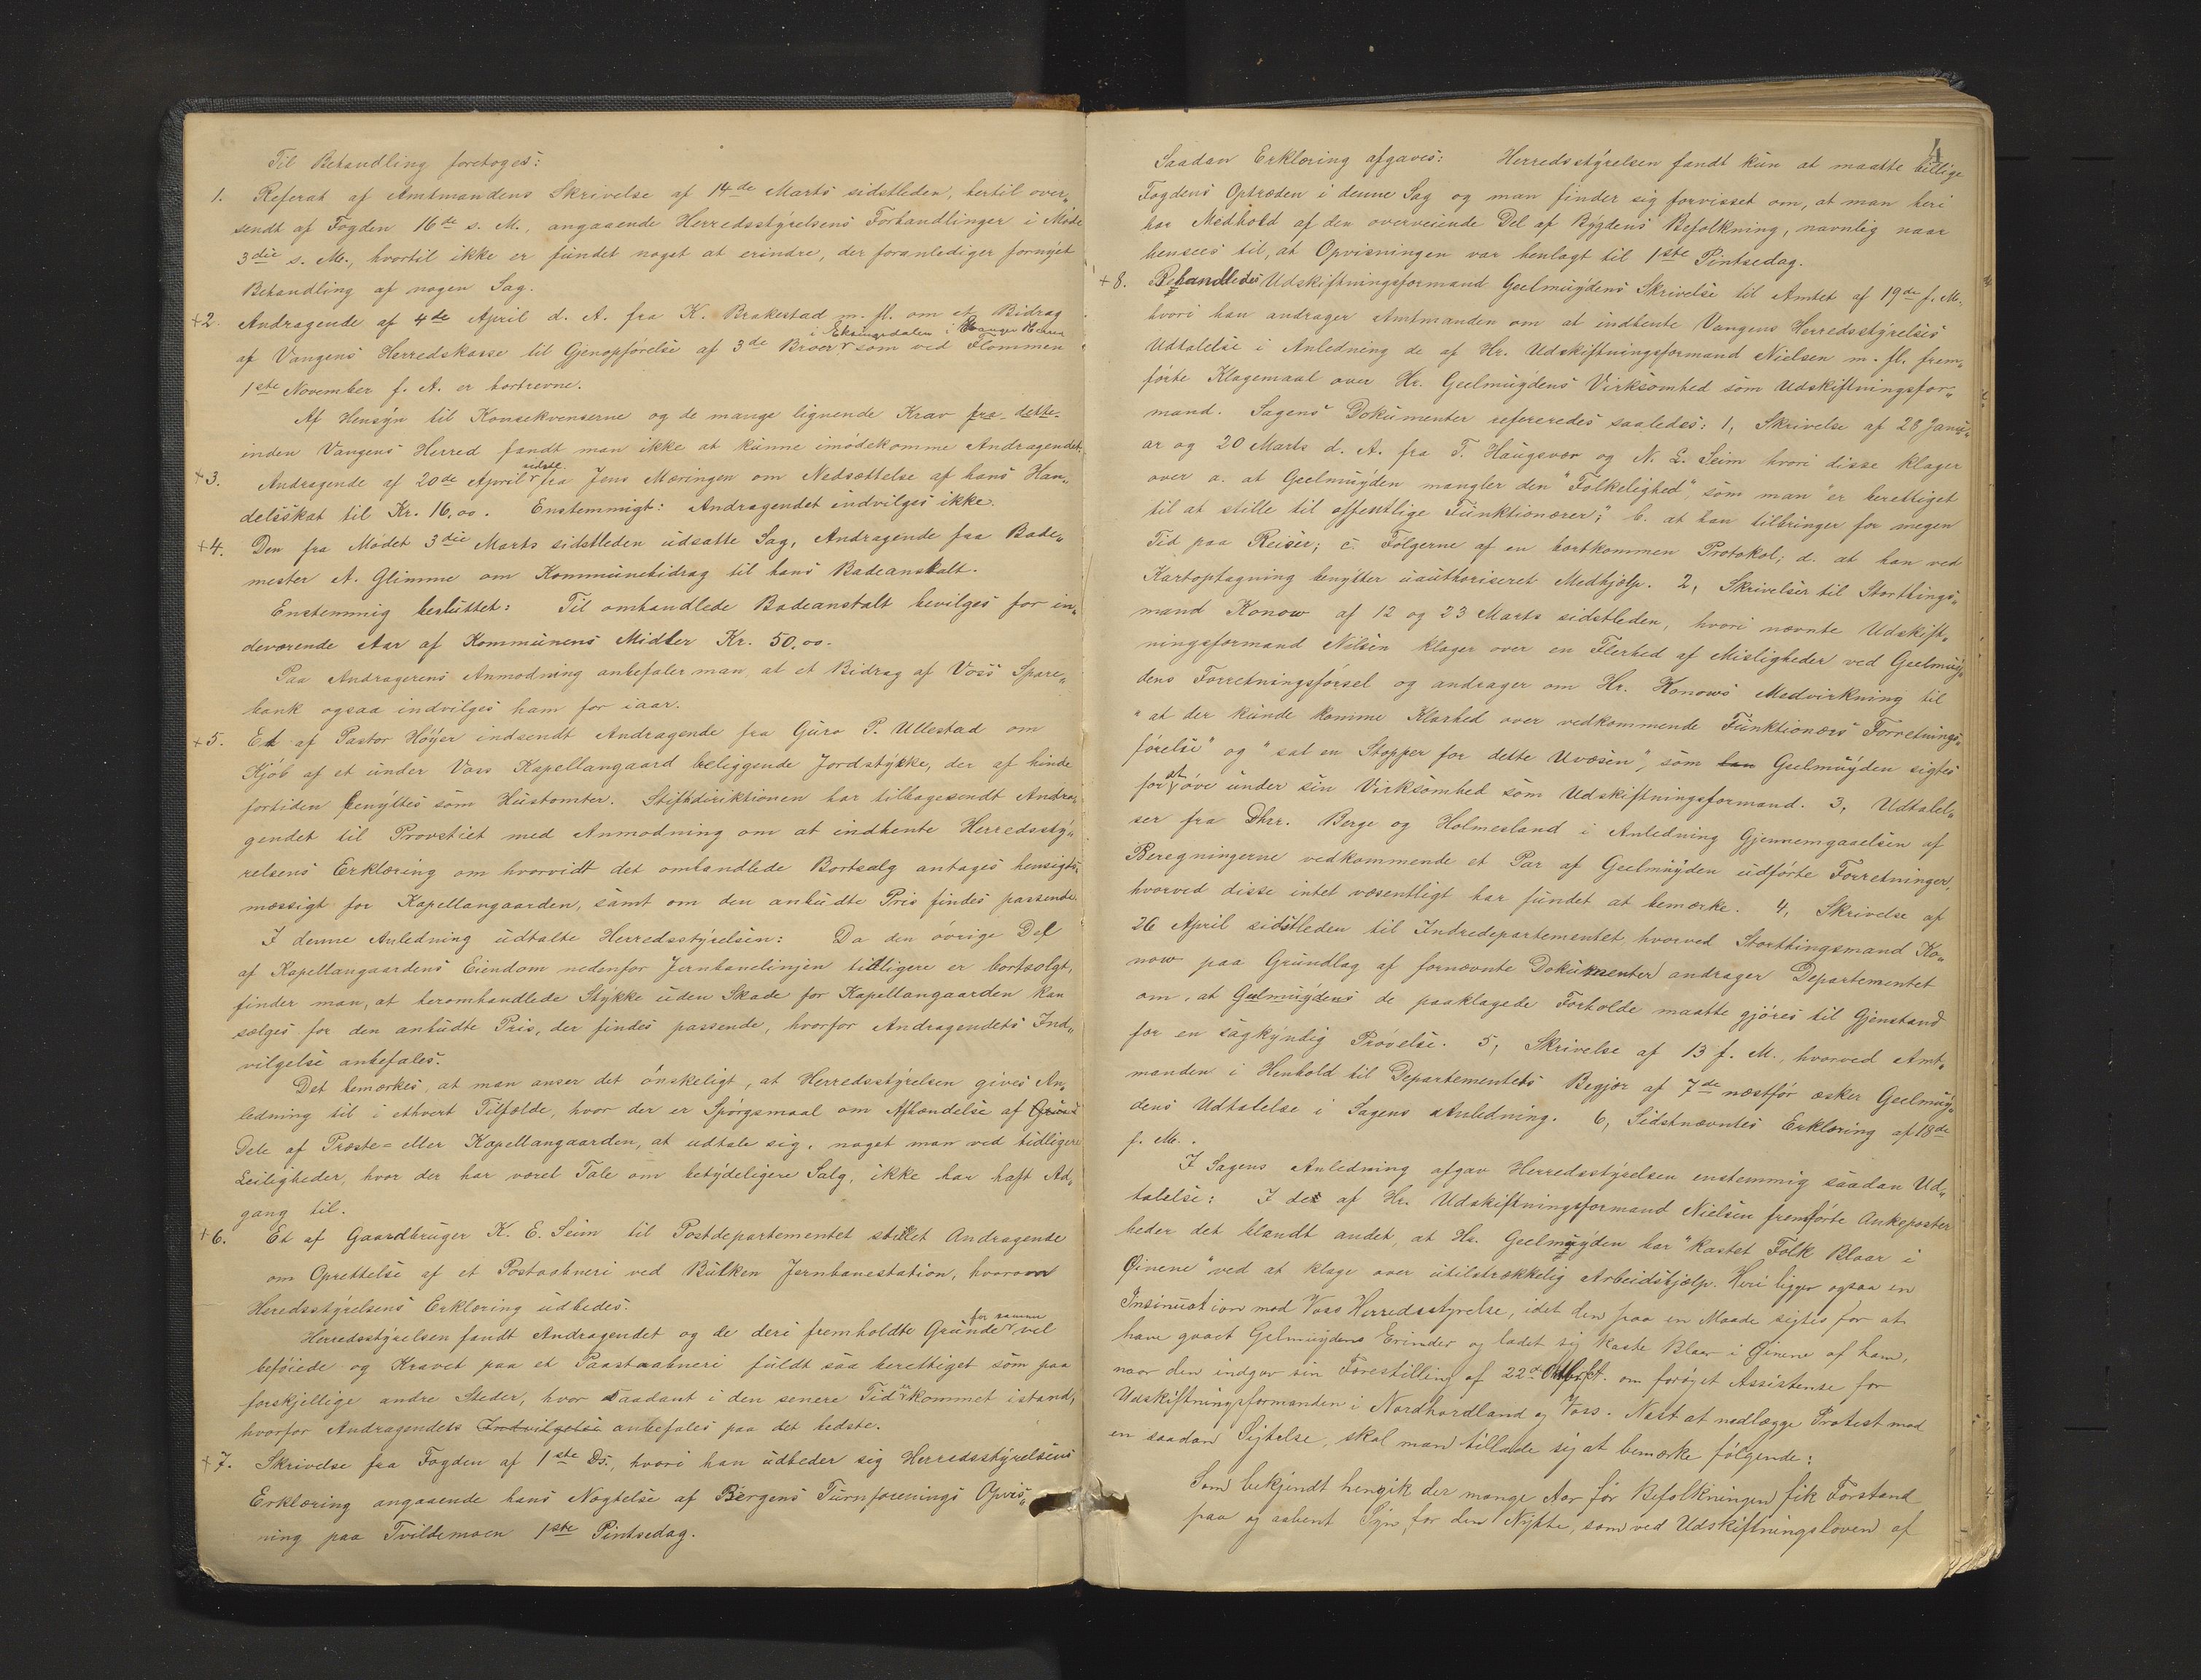 Til Behandling foretoges:
1. Referat af Amtmandens Skrivelse af 14de Marts sidstleden, hertil over„
sendt af Fogden 16de s. M., angaaende Herredsstyrelsens Forhandlinger i Møde
3die s. M., hvortil ikke er fundet noget at erindre, der foranlediger fornyet
Behandling af nogen Sag.
+2. Andragende af 4de April d. A. fra K. Brakestad m. fl. om et Bidrag
i Eksingedalen i Hre
af Vangens Herredskasse til Gjenopførelse af 3de Broer som ved Flommen
1ste November f. A. er bortrevne.
Af Hensyn til Konsekvenserne og de mange lignende Krav fra dette
inden Vangens Herred fandt man ikke at kunne imødekomme Andragendet.
+3. Andragende af 20de April sidste fra Jens Mæringen om Nedsættelse af hans Han„
delsskat til Kr. 16,00. Enstemmigt: Andragendet indvilges ikke.
+4. Den fra Mødet 3die Marts sidstleden udsatte Sag, Andragende fra Bade„
mester A. Glimme om Kommunebidrag til hans Badeanstalt.
Enstemmig besluttet: Til omhandlede Badeanstalt bevilges for in„
deværende Aar af Kommunens Midler Kr. 50,00.
Paa Andragerens Anmodning anbefaler man, at et Bidrag af Voss Spare„
bank ogsaa indvilges ham for iaar.
+5. Et af Pastor Høyer indsendt Andragende fra Guro P. Ullestad om
Kjøb af et under Voss Kapellangaard beliggende Jordstykke, der af hende
fortiden benyttes som Hustomter. Stiftsdirektionen har tilbagesendt Andra„
gendet til Provstiet med Anmodning om at indhente Herredssty„
relsens Erklæring om hvorvidt det omhandlede Bortsalg antages hensigts„
mæssigt for Kapellangaarden, samt om den anbudte Pris findes passende.
I denne Anledning udtalte Herredsstyrelsen: Da den øvrige Del
af Kapellangaardens Eiendom nedenfor Jernbanelinjen tidligere er bortsolgt,
finder man, at heromhandlede Stykke uden Skade for Kapellangaarden kan
sælges for den anbudte Pris, der findes passende, hvorfor Andragendets Ind„
vilgelse anbefales.
Det bemærkes, at man anser det ønskeligt, at Herredsstyrelsen gives An„
ledning til i ethvert Tilfælde, hvor der er Spørgsmaal om Afhændelse af
Dele af Præste= eller Kapellangaarden, at udtale sig, noget man ved tidligere
Leiligheder, hvor der har været Tale om betydeligere Salg, ikke har haft Ad„
gang til.
+6. Et af Gaardbruger K. E. Seim til Postdepartementet stillet Andragende
om Oprettelse af et Postaabneri ved Bulken Jernbanestation, hvorom
Heredsstyrelsens Erklæring udbedes.
Herredsstyrelsen fandt Andragendet og de deri fremholdte Grunde for samme vel
beføiede og Kravet paa et Paastaabneri fuldt saa berettiget som paa
forskjellige andre Steder, hvor saadant i den senere Tid er kommet istand,
hvorfor Andragendets Indvilgelse anbefales paa det bedste.
+7. Skrivelse fra Fogden af 1ste Ds., hvori han udbeder sig Herredsstyrelsens
Erklæring angaaende hans Nægtelse af Bergens Turnforenings Opvis„
ning paa Tvildemoen 1ste Pintsedag.
4
Saadan Erklæring afgaves: Herredsstyrelsen fandt kun at maatte billige
Fogdens Optræden i denne Sag og man finder sig forvisset om, at man heri
har Medhold af den overveiende Del af Bygdens Befolkning, navnlig naar
hensees til, at Opvisningen var henlagt til 1ste Pintsedag.
+8. Behandledes Udskiftningsformand Geelmuydens Skrivelse til Amtet af 19de f. M.
hvori han andrager Amtmanden om at indhente Vangens Herredsstyrelses
Udtalelse i Anledning de af Hr. Udskiftningsformand Nielsen m. fl. frem„
førte Klagemaal over Hr. Geelmuydens Virksomhed som Udskiftningsfor„
mand. Sagens Dokumenter refereredes saaledes: 1, Skrivelse af 28 Janu„
ar og 20 Marts d. A. fra T. Haugsvær og N. L. Seim hvori disse klager
over a. at Geelmuyden mangler den "Folkelighed", som man "er berettiget
til at stille til offentlige Funktionærer;" b. at han tilbringer for megen
Tid paa Reiser; c. Følgerne af en bortkommen Protokol; d. at han ved
Kartoptagning benytter uauthoriseret Medhjælp. 2, Skrivelser til Storthings„
mand Konow af 12 og 23 Marts sidstleden, hvori nævnte Udskift„
ningsformand Nilsen klager over en Flerhed af Misligheder ved Geelmuy„
dens Forretningsførsel og andrager om Hr. Konows Medvirkning til
"at der kunde komme Klarhed over vedkommende Funktionærs Forretnings„
førelse" og "sat en Stopper for dette Uvæsen", som han Geelmuyden sigtes
for at øve under sin Virksomhed som Udskiftningsformand. 3, Udtalel„
ser fra Dhrr. Berge og Holmesland i Anledning Gjennemgaaelsen af
Beregningerne vedkommende et Par af Geelmuyden udførte Forretninger,
hvorved disse intet væsentligt har fundet at bemærke. 4, Skrivelse af
26 April sidstleden til Indredepartementet, hvorved Storthingsmand Ko„
now paa Grundlag af fornævnte Dokumenter andrager Departementet
om, at Gelmuydens de paaklagede Forholde maatte gjøres til Gjenstand
for en sagkyndig Prøvelse. 5, Skrivelse af 13 f. M., hvorved Amt„
manden i Henhold til Departementets Begjær af 7de næstfør æsker Geelmuy„
dens Udtalelse i Sagens Anledning. 6, Sidstnævntes Erklæring af 18de
f. M..
I Sagens Anledning afgav Herredsstyrelsen enstemmig saadan Ud„
talelse: I de af Hr. Udskiftningsformand Nielsen fremførte Ankeposter
heder det blandt andet, at Hr. Geelmuyden har "kastet Folk Blaar i
Øinene" ved at klage over utilstrækkelig Arbeidshjælp. Heri ligger ogsaa en
Insinuation mod Voss Herredsstyrelse, idet den paa en Maade sigtes for at
have gaaet Gelmuydens Erinder og ladet sig kaste Blaar i Øinene af ham,
naar den indgav sin Forestilling af 22de om forøget Assistense for
Udskiftningsformanden i Nordhordland og Voss. Næst at nedlægge Protest mod
en saadan Sigtelse, skal man tillade sig at bemærke følgende:
Som bekjendt hengik der mange Aar før Befolkningen fik Forstand
paa og aabent Syn for den Nytte, som ved Udskiftningsloven af